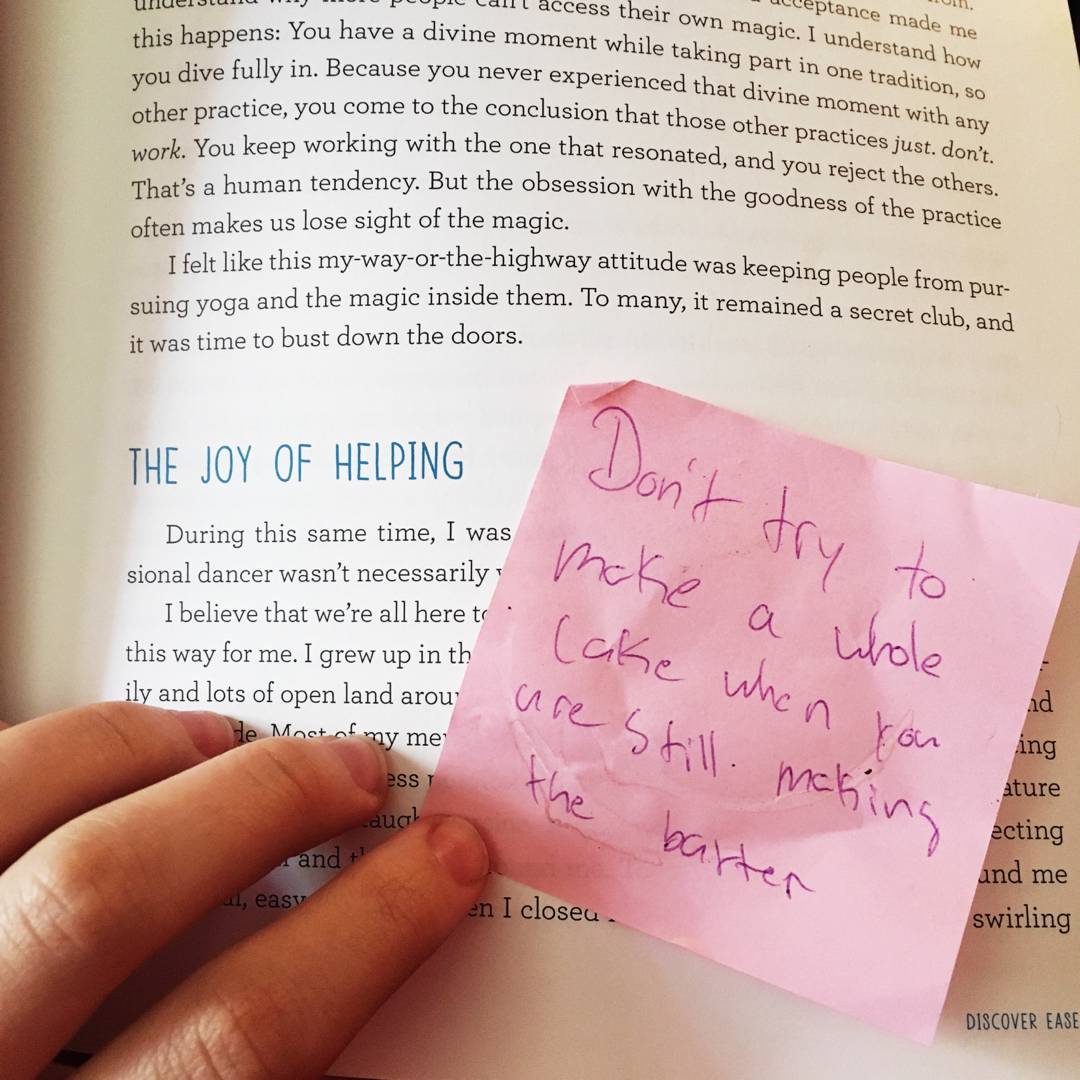 acceptance made me
understand why more people can't access their own magic. I understand how
this happens: You have a divine moment while taking part in one tradition, so
you dive fully in. Because you never experienced that divine moment with any
other practice, you come to the conclusion that those other practices just. don't.
work. You keep working with the one that resonated, and you reject the others.
That's a human tendency. But the obsession with the goodness of the practice
often makes us lose sight of the magic.
I felt like this my-way-or-the-highway attitude was keeping people from pur-
suing yoga and the magic inside them. To many, it remained a secret club, and
it was time to bust down the doors.
THE JOY OF HELPING
During this same time, I was
sional dancer wasn't necessarily
I believe that we're all here
this way for me. I grew up in
ily and lots of open land
Most of my
and
easy
en I closed
nd
ing
ature
ecting
und me
swirling
DISCOVER EASE
Don't try to
make a whole
cake when you
are still making
the batter